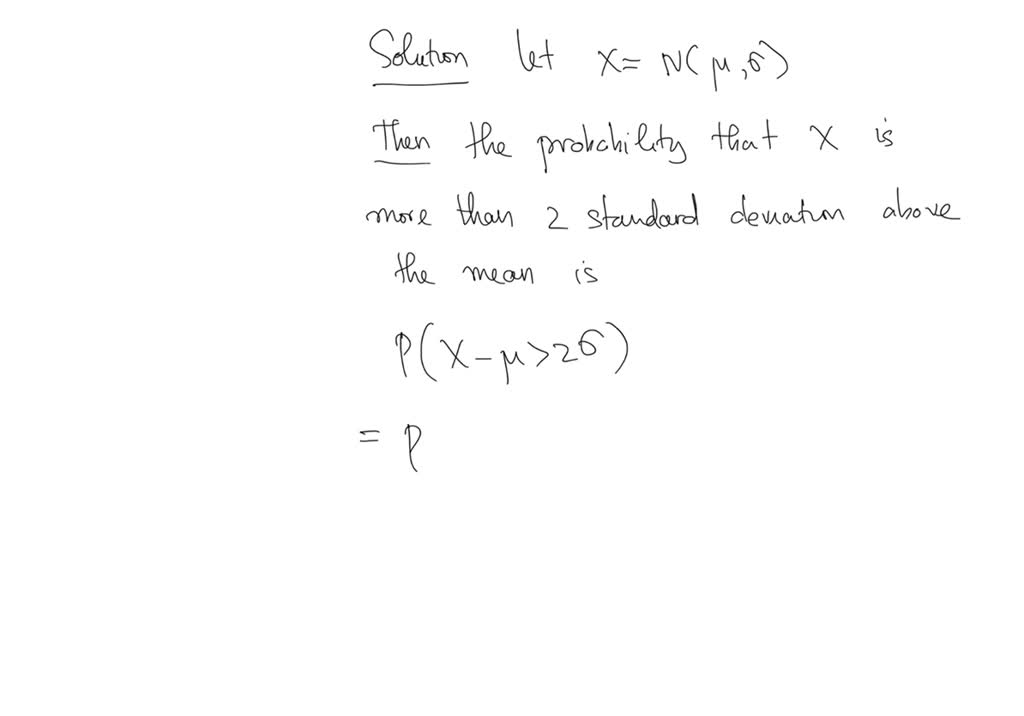 Solution let X = N(μ,σ)
Then the probability that X is
more than 2 standard deviation above
the mean is
P(X-μ>2σ)
= P